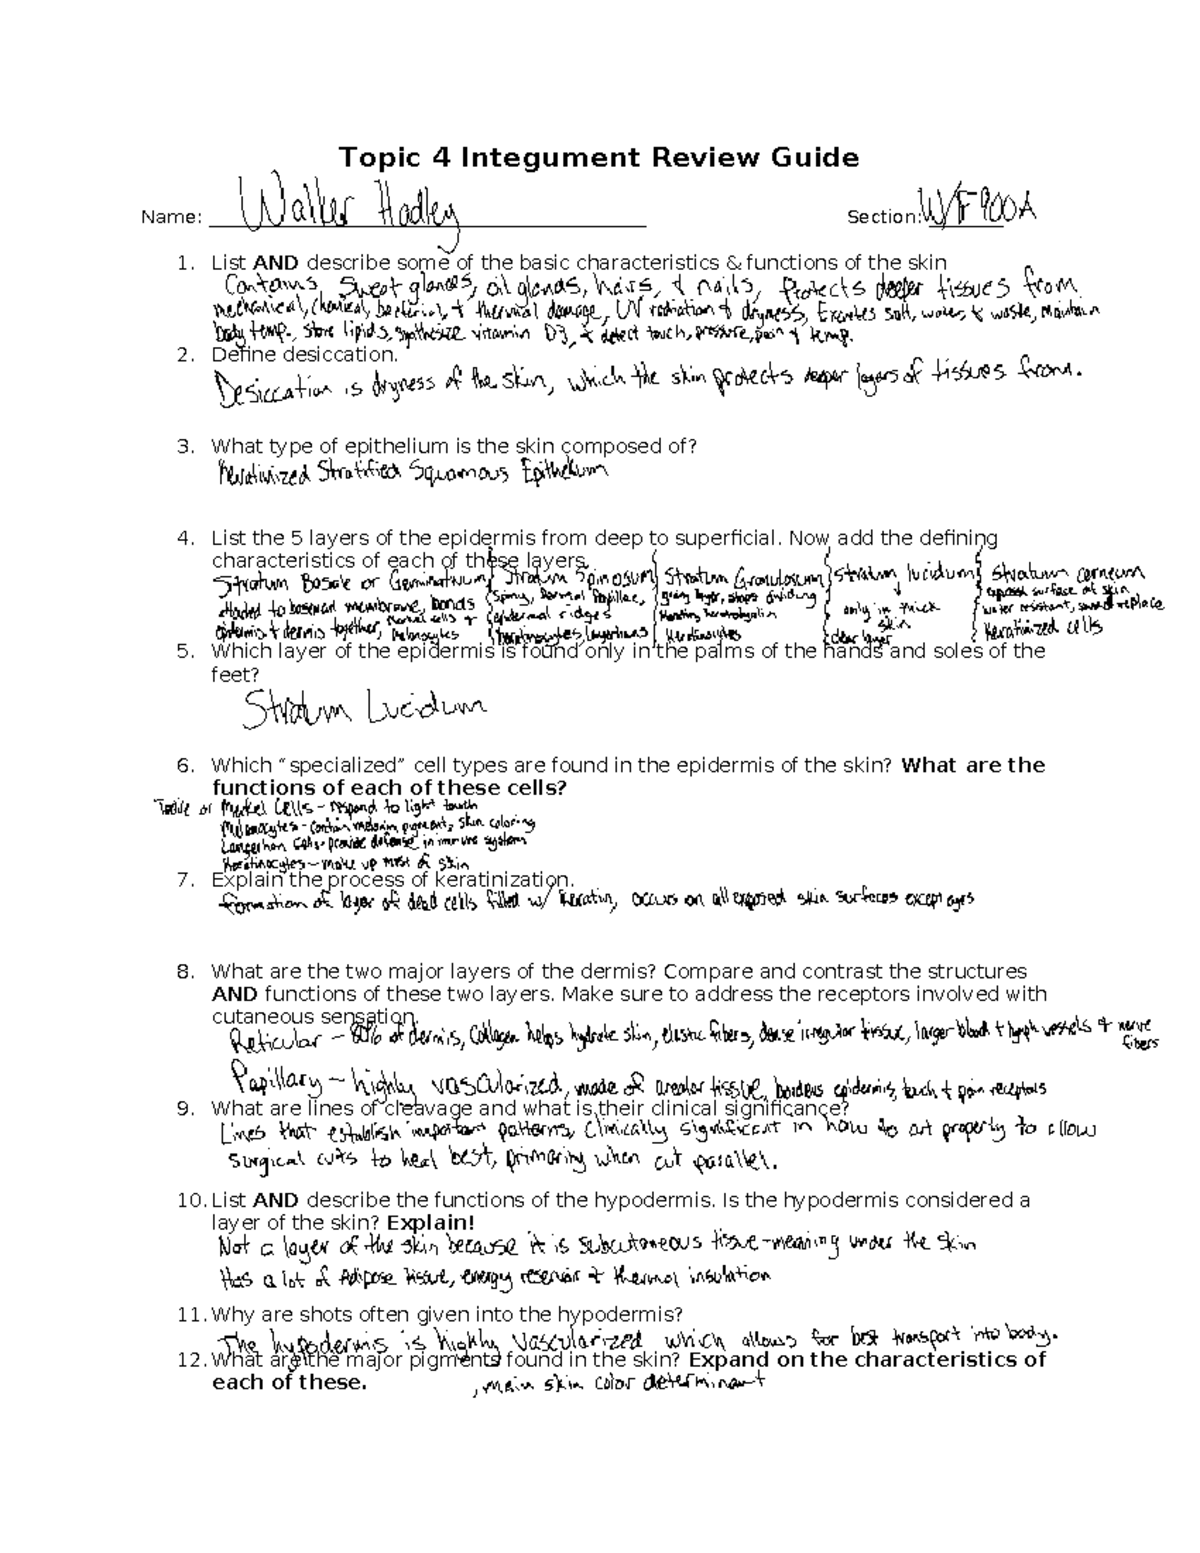 Topic 4 Integument Review Guide
Name: Walker Hadley Section: WF900A
1. List AND describe some of the basic characteristics & functions of the skin
Contains sweat glands, oil glands, hairs, & nails, Protects deeper tissues from
mechanical, chemical, bacterial, & thermal damage, UV radiation & dryness, Excretes salt, water, & waste, Maintain
body temp., store lipids, synthesize vitamin D3, & detect touch, pressure, pain & temp.
2. Define desiccation.
Desiccation is dryness of the skin, which the skin protects deeper layers of tissues from.
3. What type of epithelium is the skin composed of?
Keratinized Stratified Squamous Epithelium
4. List the 5 layers of the epidermis from deep to superficial. Now add the defining
characteristics of each of these layers.
Stratum Basale or Germinativum Stratum Spinosum Stratum Granulosum Stratum lucidum Stratum corneum
attached to basement membrane, bonds spiny, Dermal Papillae, grainy layer, stops dividing only in thick exposed surface of skin
epidermis & dermis together, merkel cells & epidermal ridges keratohyalin skin water resistant, replace
melanocytes keratinocytes, Keratinocytes clear layer Keratinized cells
5. Which layer of the epidermis is found only in the palms of the hands and soles of the
feet?
Stratum Lucidum
6. Which “specialized” cell types are found in the epidermis of the skin? What are the
functions of each of these cells?
Tactile or Merkel Cells - respond to light touch
Melanocytes - contain melanin pigment, skin coloring
Langerhan Cells - provide defense in immune system
Keratinocytes - make up most of skin
7. Explain the process of keratinization.
formation of layer of dead cells filled w/ keratin, occurs on all exposed skin surfaces except eyes
8. What are the two major layers of the dermis? Compare and contrast the structures
AND functions of these two layers. Make sure to address the receptors involved with
cutaneous sensation.
Reticular - 80% of dermis, Collagen helps hydrate skin, elastic fibers, dense irregular tissue, larger blood & lymph vessels & nerve
fibers
Papillary - highly vascularized, made of areolar tissue, borders epidermis, touch & pain receptors
9. What are lines of cleavage and what is their clinical significance?
Lines that establish important patterns, Clinically significant in how to cut properly to allow
surgical cuts to heal best, primarily when cut parallel.
10. List AND describe the functions of the hypodermis. Is the hypodermis considered a
layer of the skin? Explain!
Not a layer of the skin because it is subcutaneous tissue - meaning under the skin
Has a lot of Adipose tissue, energy reservoir & thermal insulation
11. Why are shots often given into the hypodermis?
The hypodermis is highly vascularized which allows for best transport into body.
12. What are the major pigments found in the skin? Expand on the characteristics of
each of these. , main skin color determinant